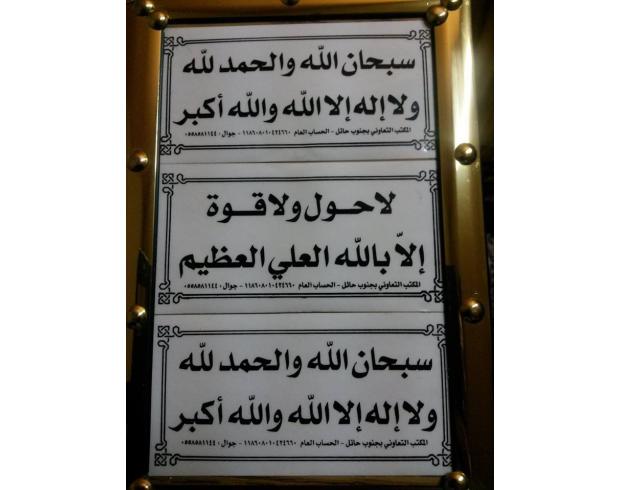 سبحان الله والحمد لله
ولا إله إلا الله والله أكبر
المكتب التعاوني بجنوب حائل - الحساب العام ١١٨٦٠٨٠١٠٤٢٤٦٦٠ - جوال: ٠٥٥٨٥٨١١٤٤
لا حول ولا قوة
إلا بالله العلي العظيم
المكتب التعاوني بجنوب حائل - الحساب العام ١١٨٦٠٨٠١٠٤٢٤٦٦٠ - جوال: ٠٥٥٨٥٨١١٤٤
سبحان الله والحمد لله
ولا إله إلا الله والله أكبر
المكتب التعاوني بجنوب حائل - الحساب العام ١١٨٦٠٨٠١٠٤٢٤٦٦٠ - جوال: ٠٥٥٨٥٨١١٤٤